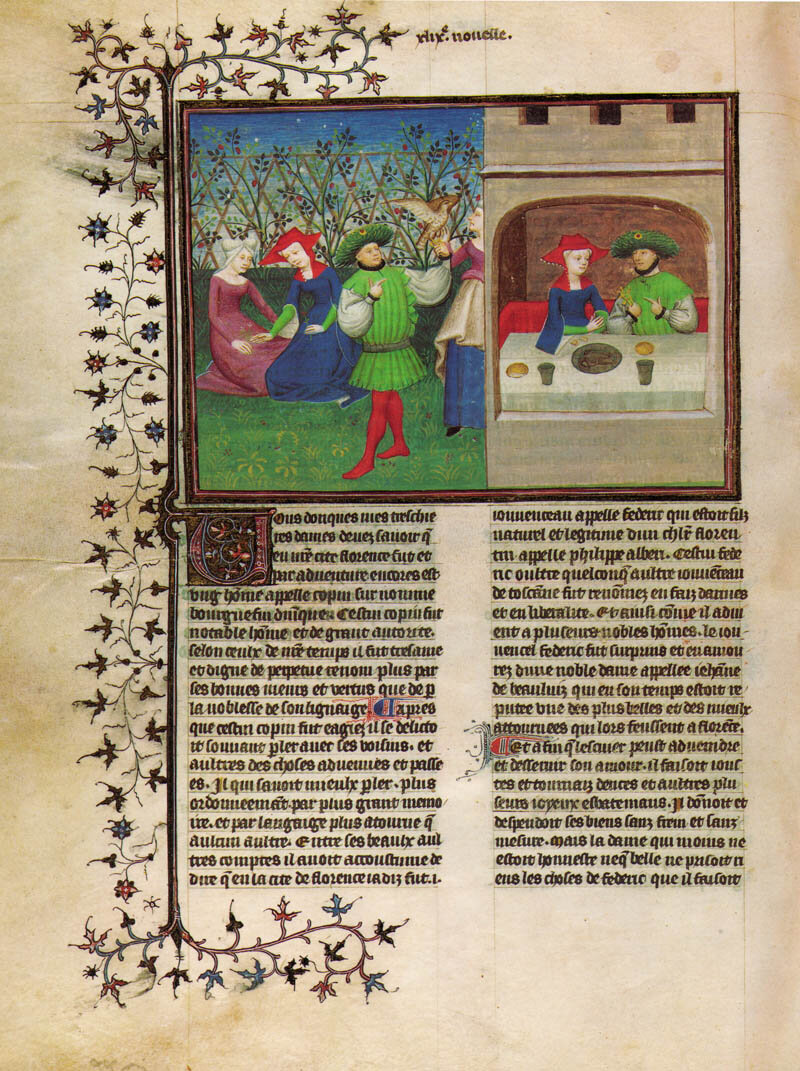 xlixe. nouelle.
Uous donques mes treschie
res dames deuez sauoir q̄
en n̄re cite florence fut et
par aduenture encores est
vng hōme appelle copin surnomme
bourguefin dn̄ique. Cestui copin fut
notable hōme et de grant autorite.
selon ceulx de n̄re temps il fut tresame
et digne de perpetue renom plus par
ses bonnes meurs et vertus que de p
la noblesse de son lignaige. Apres
que cestui copin fut eagiez il se delicto
it souuant p̱ler auec ses voisins. et
aultres des choses aduenues et passe
es. Il qui sauoit mieulx p̱ler. plus
ordonneemāt. par plus grant memo
ire. et par languaige plus atourne q̄
aulcun aultre. Entre ses beaulx aul
tres comptes il auoit accoustume de
dire q̄ en la cite de florence iadiz fut. i.
iouuenceau appelle federic qui estoit filz
naturel et legitime dun chl̄r floren
tin appelle philippe alberi. Cestui fede
ric oultre quelconq̄ aultre iouuēceau
de toscane fut renōmez en faiz darmes
et en liberalite. Et ainsi cōme il adui
ent a pluseurs nobles hōmes. le iou
uencel federic fut surpuns et enamou
rez dune noble dame appellee iehāne
de beauluiz qui en son temps estoit re
putee vne des plus belles et des mieulx
attournees qui lors feussent a florēce.
Et afin q̄ lescuier peust aduenir
et desseruir son amour. il faisoit ious
tes et tournaiz dences et aultres plu
seurs ioyeux esbatemans. Il dōnoit et
despendoit ses biens sanz frein et sanz
mesure. mais la dame qui moins ne
estoit honneste neq̄ belle ne prisoit ri
ens les choses de federic que il faisoit